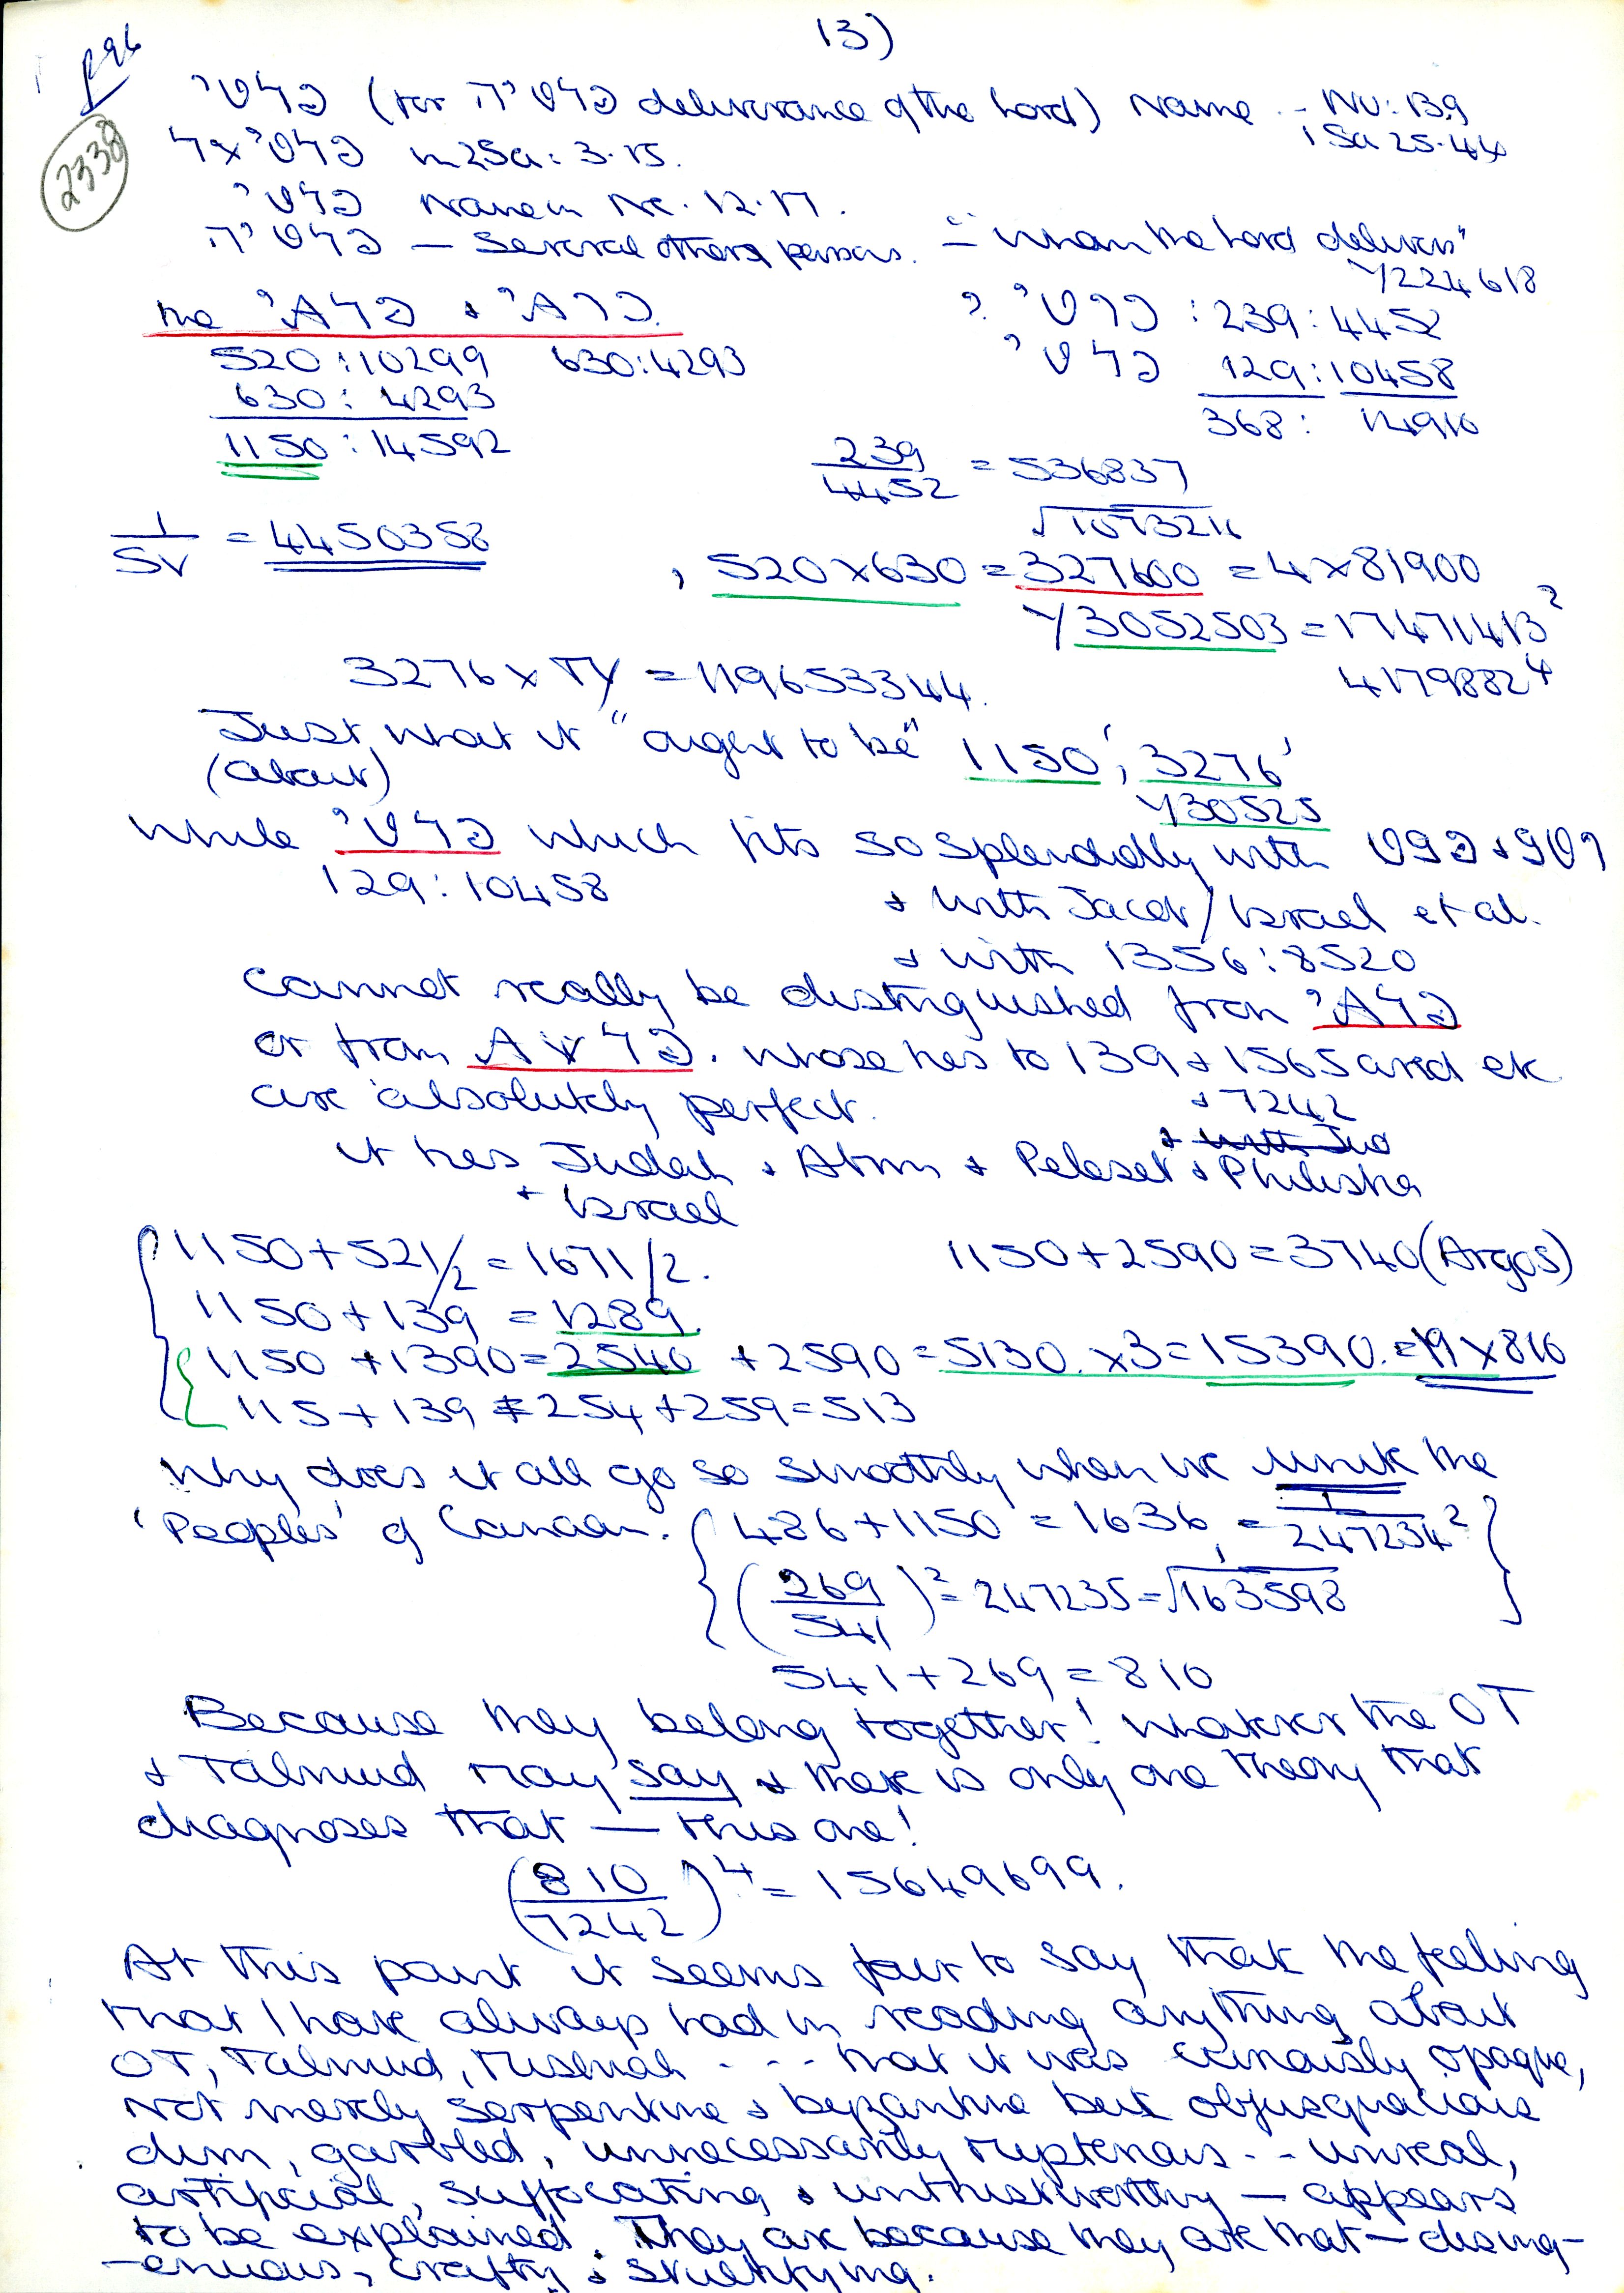 13)
p96
2338
פלטי (for פלטיה deliverance of the Lord) Name - Nu: 13.9
1 Sa 25.44
פלטיאל in 2 Sa: 3.15.
פלטי Name in Ne. 12.17.
פלטיה — Several others persons. = "whom the Lord delivers"
Y224618
the
520:10299 630:4293
630: 4293
1150:14592
: 239:4452
129:10458
368: 14910
239/4452 = 536837
√1073216
1/SV = 4450358
, 520 x 630 = 327600 = 4 x 81900
Y3052503 = 17471413²
41798824
3276 x TY = 119653344.
Just what it "ought to be" 1150', 3276'
(about) Y30525
while פלטי which fits so splendidly with
129:10458
+ with Jacob/Israel et al.
+ with 1356:8520
cannot really be distinguished from
or from . whose ties to 139 + 1565 and etc
are absolutely perfect. + 7242
+ with Jud
it ties Judah + Atum + Peleset + Philistia
+ Israel
1150 + 521/2 = 1671/2. 1150 + 2590 = 3740 (Argos)
1150 + 139 = 1289.
1150 + 1390 = 2540 + 2590 = 5130. x3 = 15390. = 19 x 810
115 + 139 = 254 + 259 = 513
Why does it all go so smoothly when we unite the
'Peoples' of Canaan. { 486 + 1150 = 1636 = 1/247234² }
(269/541)² = 247235 = √163598
541 + 269 = 810
Because they belong together! Whatever the OT
+ Talmud may say + there is only one theory that
diagnoses that — this one!
(810/7242)⁴ = 15649699.
At this point it seems fair to say that the feeling
that I have always had in reading anything about
OT, Talmud, Mishnah - - - that it was curiously opaque,
not merely serpentine + byzantine but
dim, garbled, unnecessarily mysterious - - unreal,
artificial, suffocating + untrustworthy — appears
to be explained. They are because they are that — dising-
-enuous, crafty + stultifying.